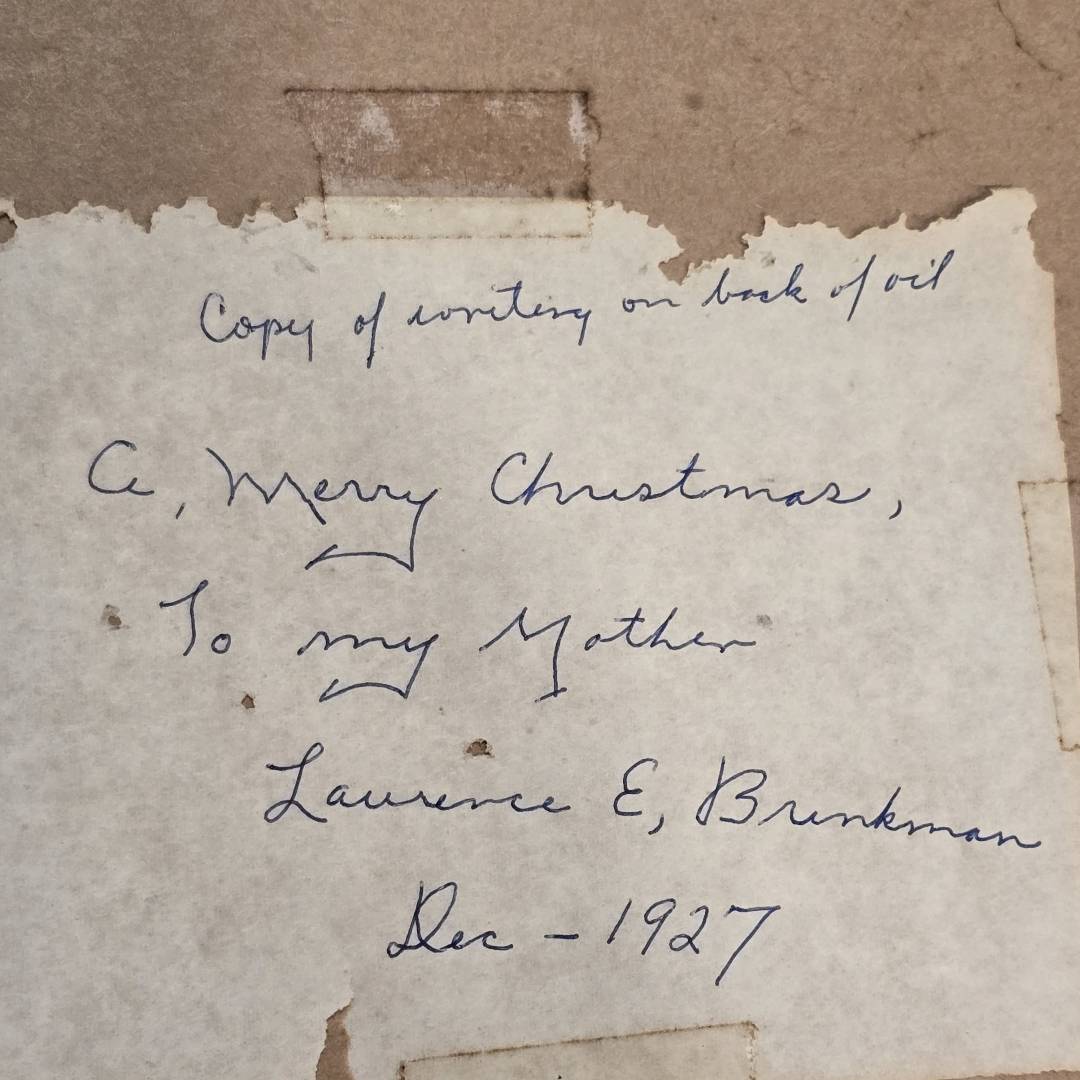 Copy of writing on back of oil
A, Merry Christmas,
To my Mother
Laurence E, Brinkman
Dec - 1927